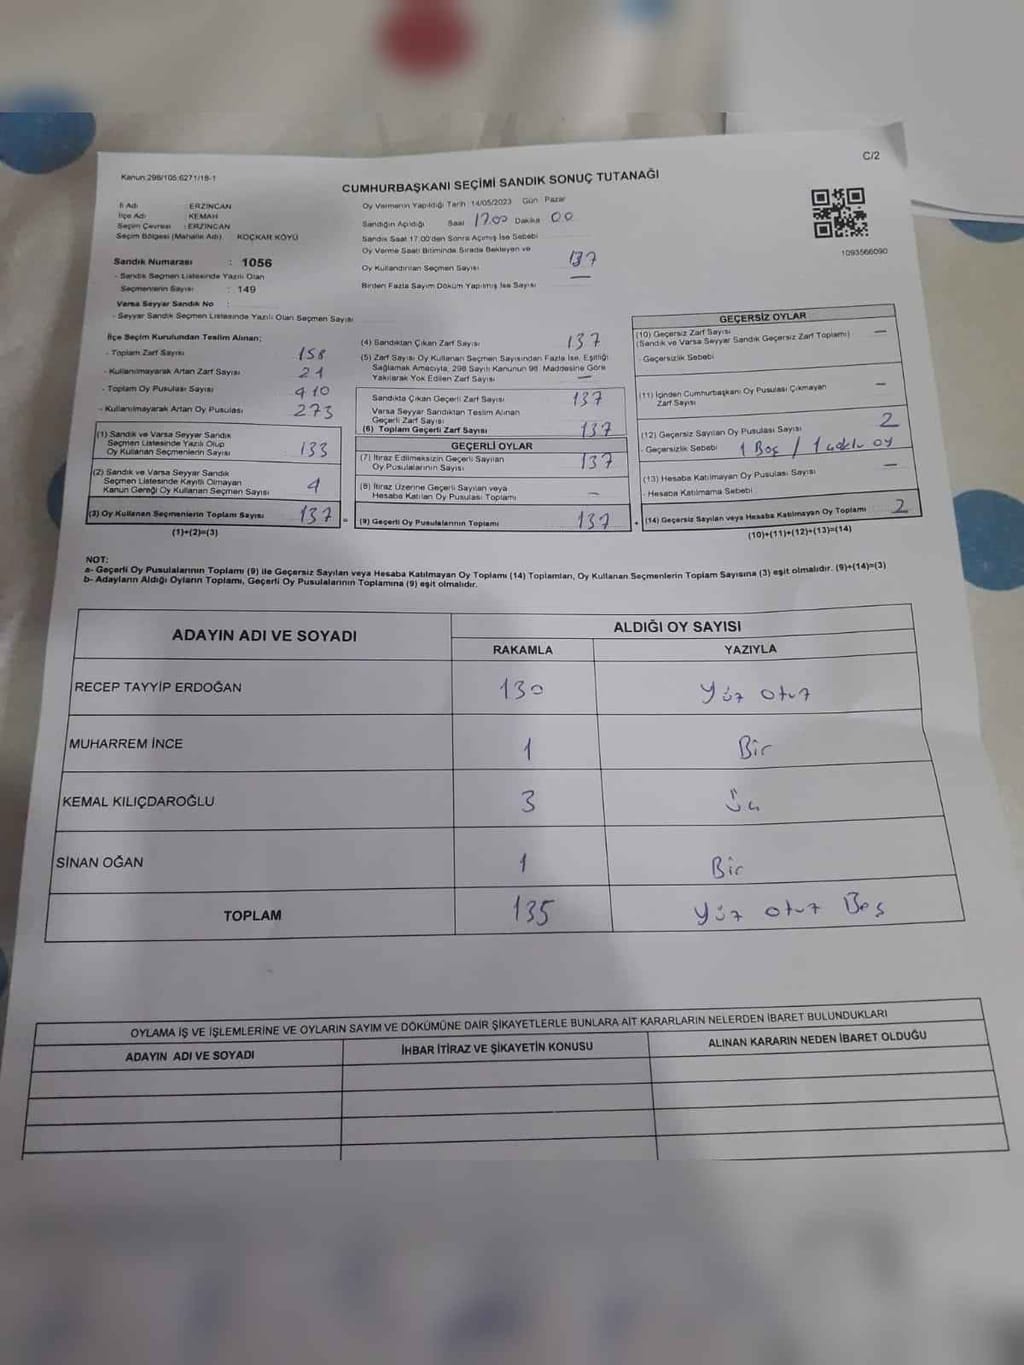 C/2
Kanun:298/105,6271/18-1
CUMHURBAŞKANI SEÇİMİ SANDIK SONUÇ TUTANAĞI
İl Adı : ERZİNCAN
İlçe Adı : KEMAH
Seçim Çevresi : ERZİNCAN
Seçim Bölgesi (Mahalle Adı) KOÇKAR KÖYÜ
Sandık Numarası : 1056
- Sandık Seçmen Listesinde Yazılı Olan
Seçmenlerin Sayısı : 149
Varsa Seyyar Sandık No :
- Seyyar Sandık Seçmen Listesinde Yazılı Olan Seçmen Sayısı
Oy Vermenin Yapıldığı Tarih 14/05/2023 Gün Pazar
Sandığın Açıldığı Saat 17.00 Dakika 00
Sandık Saat 17.00'den Sonra Açılmış İse Sebebi
Oy Verme Saati Bitiminde Sırada Bekleyen ve
Oy Kullandırılan Seçmen Sayısı 137
Birden Fazla Sayım Döküm Yapılmış İse Sayısı —
1093566090
İlçe Seçim Kurulundan Teslim Alınan;
- Toplam Zarf Sayısı 158
- Kullanılmayarak Artan Zarf Sayısı 21
- Toplam Oy Pusulası Sayısı 410
- Kullanılmayarak Artan Oy Pusulası 273
(1) Sandık ve Varsa Seyyar Sandık
Seçmen Listesinde Yazılı Olup
Oy Kullanan Seçmenlerin Sayısı 133
(2) Sandık ve Varsa Seyyar Sandık
Seçmen Listesinde Kayıtlı Olmayan
Kanun Gereği Oy Kullanan Seçmen Sayısı 4
(3) Oy Kullanan Seçmenlerin Toplam Sayısı 137
(1)+(2)=(3)
(4) Sandıktan Çıkan Zarf Sayısı 137
(5) Zarf Sayısı Oy Kullanan Seçmen Sayısından Fazla İse, Eşitliği
Sağlamak Amacıyla, 298 Sayılı Kanunun 98. Maddesine Göre
Yakılarak Yok Edilen Zarf Sayısı —
Sandıkta Çıkan Geçerli Zarf Sayısı 137
Varsa Seyyar Sandıktan Teslim Alınan
Geçerli Zarf Sayısı
(6) Toplam Geçerli Zarf Sayısı 137
GEÇERLİ OYLAR
(7) İtiraz Edilmeksizin Geçerli Sayılan
Oy Pusulalarının Sayısı 137
(8) İtiraz Üzerine Geçerli Sayılan veya
Hesaba Katılan Oy Pusulası Toplamı —
= (9) Geçerli Oy Pusulalarının Toplamı 137
GEÇERSİZ OYLAR
(10) Geçersiz Zarf Sayısı —
(Sandık ve Varsa Seyyar Sandık Geçersiz Zarf Toplamı)
- Geçersizlik Sebebi
(11) İçinden Cumhurbaşkanı Oy Pusulası Çıkmayan
Zarf Sayısı —
(12) Geçersiz Sayılan Oy Pusulası Sayısı 2
- Geçersizlik Sebebi 1 Boş / 1 çoklu oy
(13) Hesaba Katılmayan Oy Pusulası Sayısı —
- Hesaba Katılmama Sebebi
+ (14) Geçersiz Sayılan veya Hesaba Katılmayan Oy Toplamı 2
(10)+(11)+(12)+(13)=(14)
NOT:
a- Geçerli Oy Pusulalarının Toplamı (9) ile Geçersiz Sayılan veya Hesaba Katılmayan Oy Toplamı (14) Toplamları, Oy Kullanan Seçmenlerin Toplam Sayısına (3) eşit olmalıdır. (9)+(14)=(3)
b- Adayların Aldığı Oyların Toplamı, Geçerli Oy Pusulalarının Toplamına (9) eşit olmalıdır.
ADAYIN ADI VE SOYADI
ALDIĞI OY SAYISI
RAKAMLA YAZIYLA
RECEP TAYYİP ERDOĞAN 130 Yüz otuz
MUHARREM İNCE 1 Bir
KEMAL KILIÇDAROĞLU 3 Üç
SİNAN OĞAN 1 Bir
TOPLAM 135 Yüz otuz Beş
OYLAMA İŞ VE İŞLEMLERİNE VE OYLARIN SAYIM VE DÖKÜMÜNE DAİR ŞİKAYETLERLE BUNLARA AİT KARARLARIN NELERDEN İBARET BULUNDUKLARI
ADAYIN ADI VE SOYADI İHBAR İTİRAZ VE ŞİKAYETİN KONUSU ALINAN KARARIN NEDEN İBARET OLDUĞU